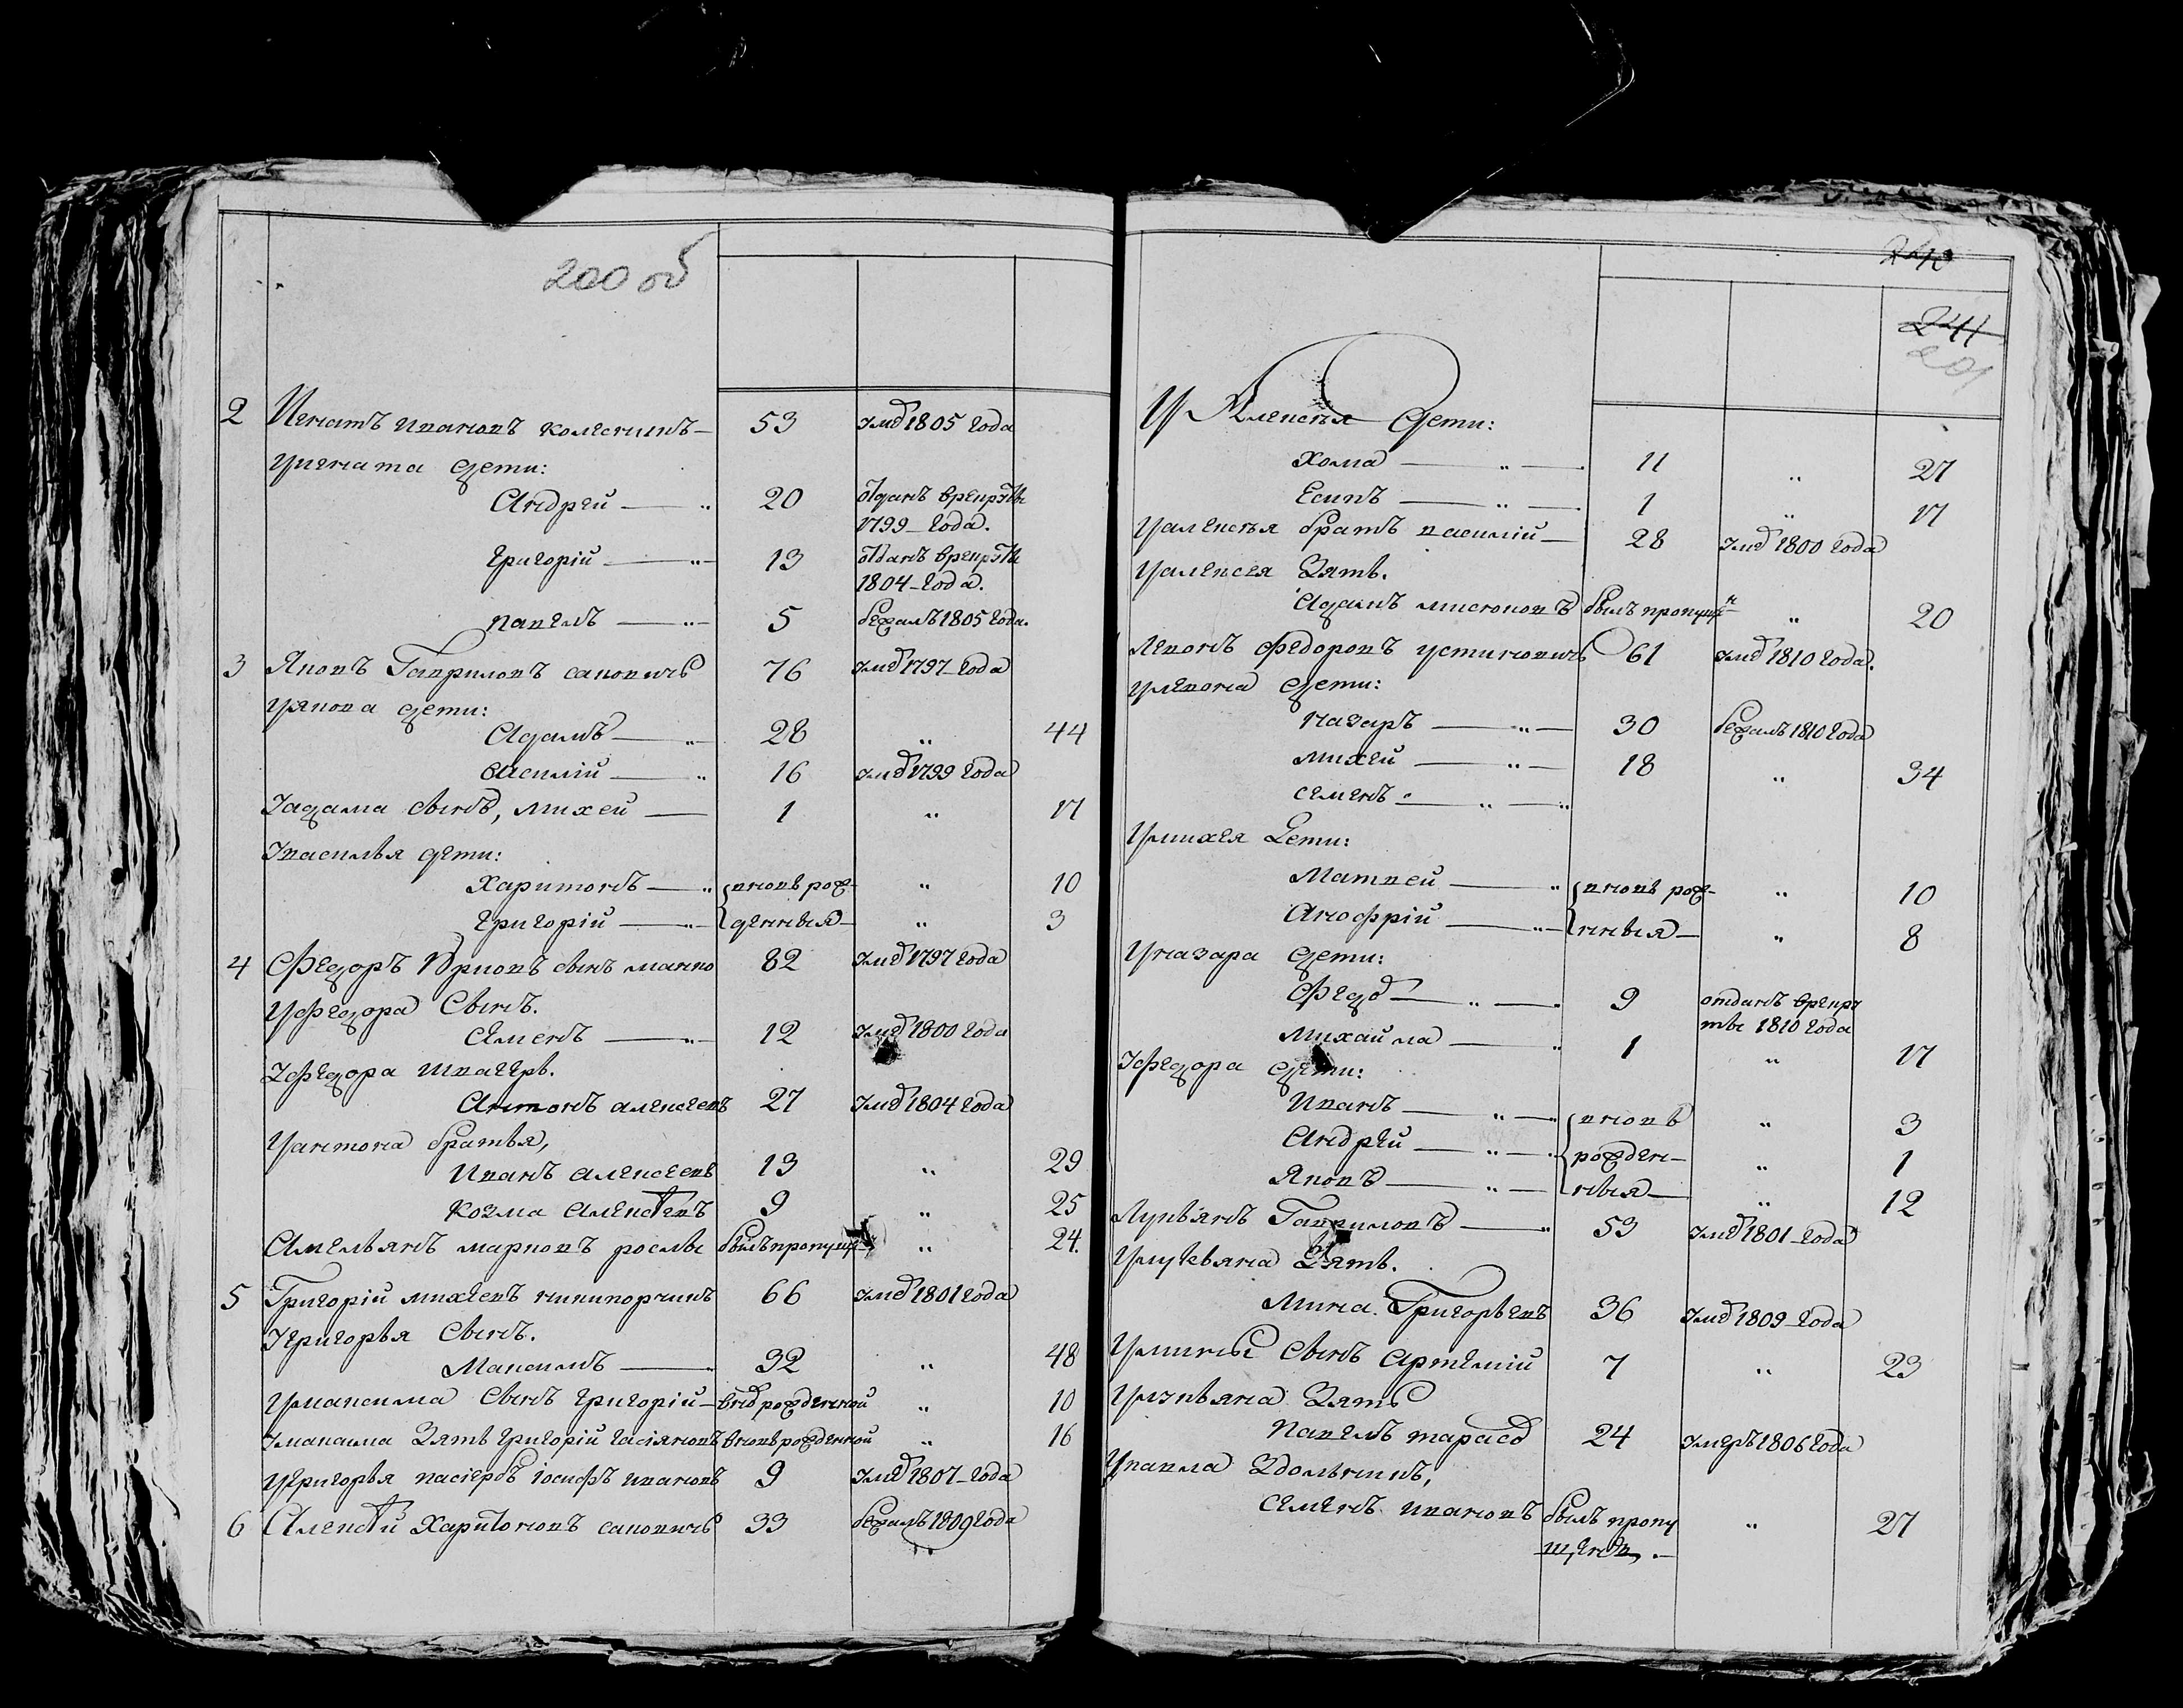 200 об
2 Игнатъ Ивановъ Колесникъ — 53 умеръ 1805 года
у Игната дети:
Андрей — 20 отданъ в рекруты
1799 года.
Григорій — 13 отданъ в рекруты
1804 года.
Павелъ — 5 бежалъ 1805 года.
3 Яковъ Гавриловъ Саковичь 76 умеръ 1797 года
у Якова дети:
Адамъ — 28 „ 44
Василій — 16 умеръ 1799 года
У Адама сынъ, Михей — 1 „ 17
У Василья дети:
Харитонъ — вновь рож- „ 10
Григорій — денныя — „ 3
4 Федоръ сынъ 82 умеръ 1797 года
У Федора Сынъ.
Семенъ — 12 умеръ 1800 года
У Федора швагеръ.
Антонъ Алексеевъ 27 умеръ 1804 года
У Антона братья,
Иванъ Алексеевъ 13 „ 29
Козма Алексеевъ 9 „ 25
Амельянъ Марковъ былъ пропущ „ 24.
5 Григорій Михеевъ 66 умеръ 1801 года
У Григорья Сынъ.
Максимъ — 32 „ 48
У Максима Сынъ Григорій — вновь рожденной „ 10
У Максима Зять Григорій вновь рожденной „ 16
У Григорья пасербъ Іосифъ Ивановъ 9 умеръ 1807 года
6 Алексей Харитоновъ Саковичь 33 бежалъ 1809 года
240
241
201
У Алексея Дети:
Хома — 11 „ 27
Есипъ — 1 „ 17
У Алексея братъ Василій — 28 умеръ 1800 года
У Алексея Зять.
Адамъ былъ пропущ „ 20
Левонъ Федоровъ Устиновичь 61 умеръ 1810 года.
У Левона дети:
Назаръ — 30 бежалъ 1810 года
Михей — 18 „ 34
Семенъ —
У Михея Дети:
Матвей — вновь рож- „ 10
Анофрій — нныя — „ 8
У Назара дети:
Федоръ — 9 отданъ в рекру
ты 1810 года
Михайла — 1 „ 17
У Федора дети:
Иванъ — вновь „ 3
Андрей — рожден- „ 1
Яковъ — ныя — „ 12
Лукьянъ Гавриловъ — 53 умеръ 1801 года
У Лукьяна Зять.
Мина Григорьевъ 36 умеръ 1809 года
У Мины Сынъ Артемій 7 „ 23
У Лукьяна Зять
Павелъ Тарасовъ 24 умеръ 1806 года
У Павла Здольникъ,
Семенъ Ивановъ былъ пропу „ 27
щенъ. —